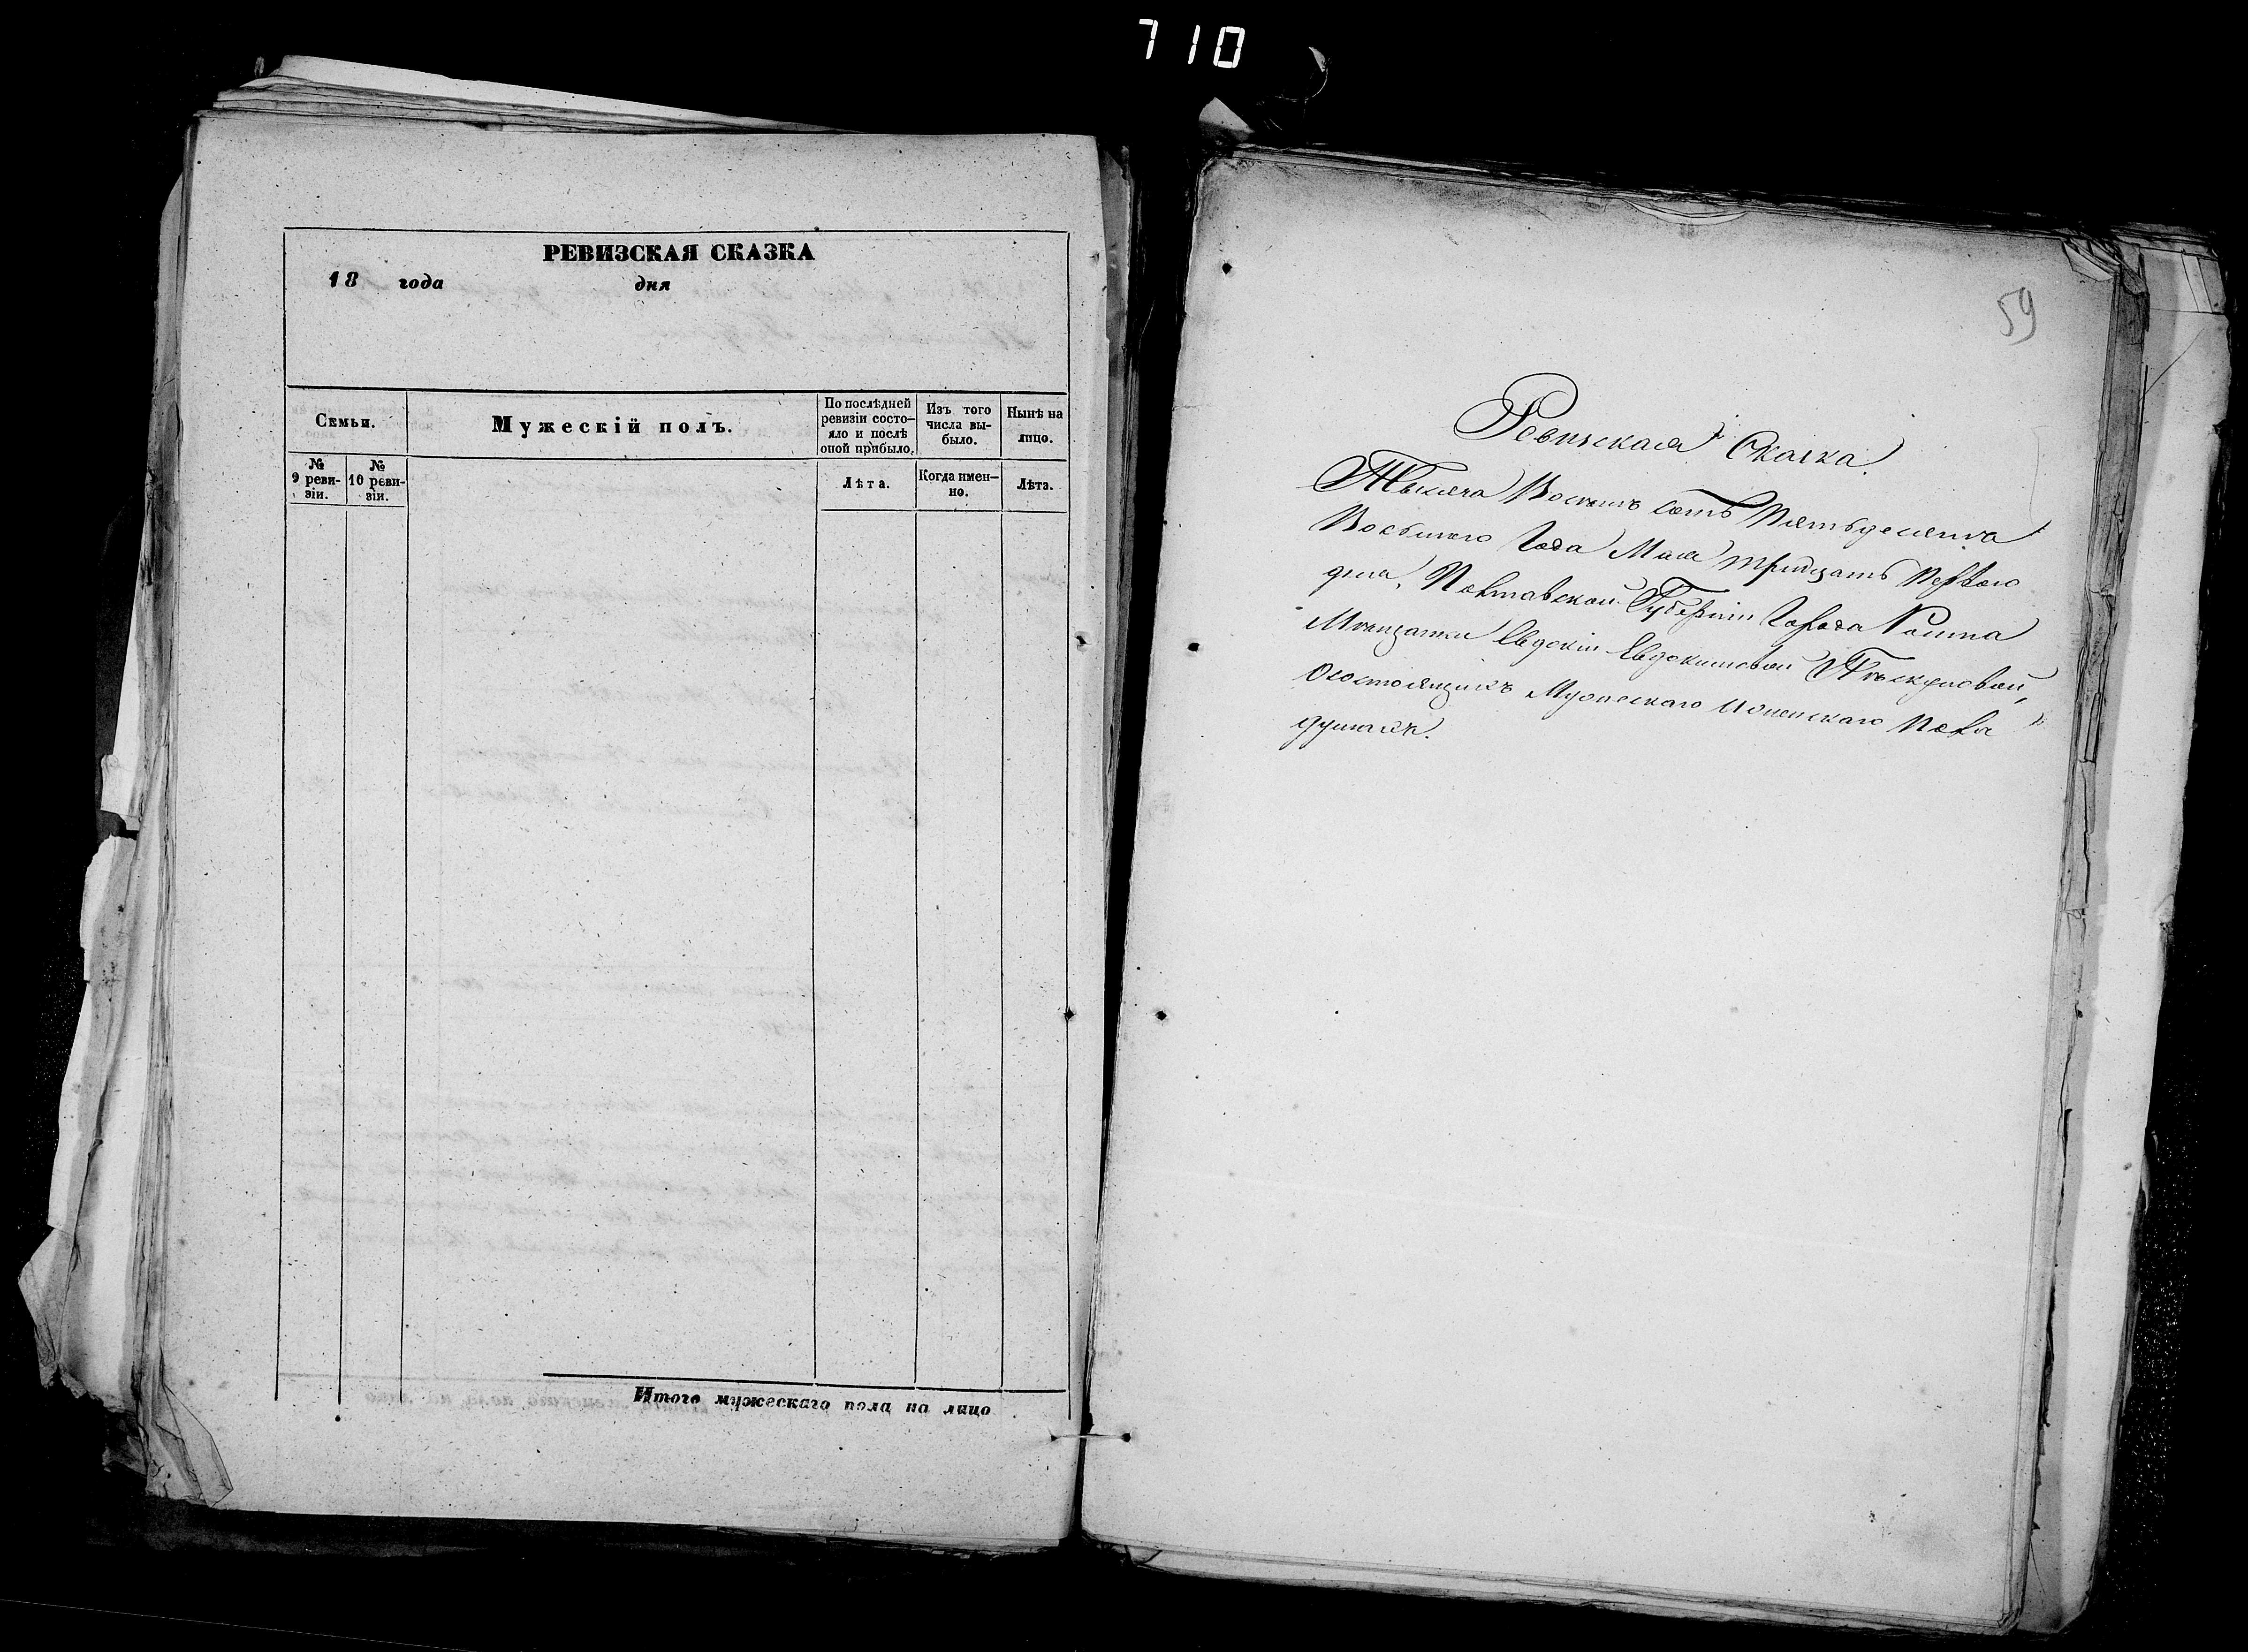 710
РЕВИЗСКАЯ СКАЗКА
18 года дня
Семьи.
Мужескій полъ.
По послѣдней ревизіи состо-
яло и послѣ
оной прибыло.
Изъ того
числа вы-
было.
Нынѣ на
лицо.
№
9 реви-
зіи.
№
10 реви-
зіи.
Лѣта.
Когда имен-
но.
Лѣта.
Итого мужескаго пола на лицо
59
Ревизская Сказка
Тысяча Восемь сотъ Пятьдесята
Восьмаго Года Мая тридцать Перваго
дня, Полтавской Губерніи Города Ромна
Мѣщанки Евдокіи Евдокимовой
Осостоящихъ Мужескаго Иженскаго Пола
душахъ.